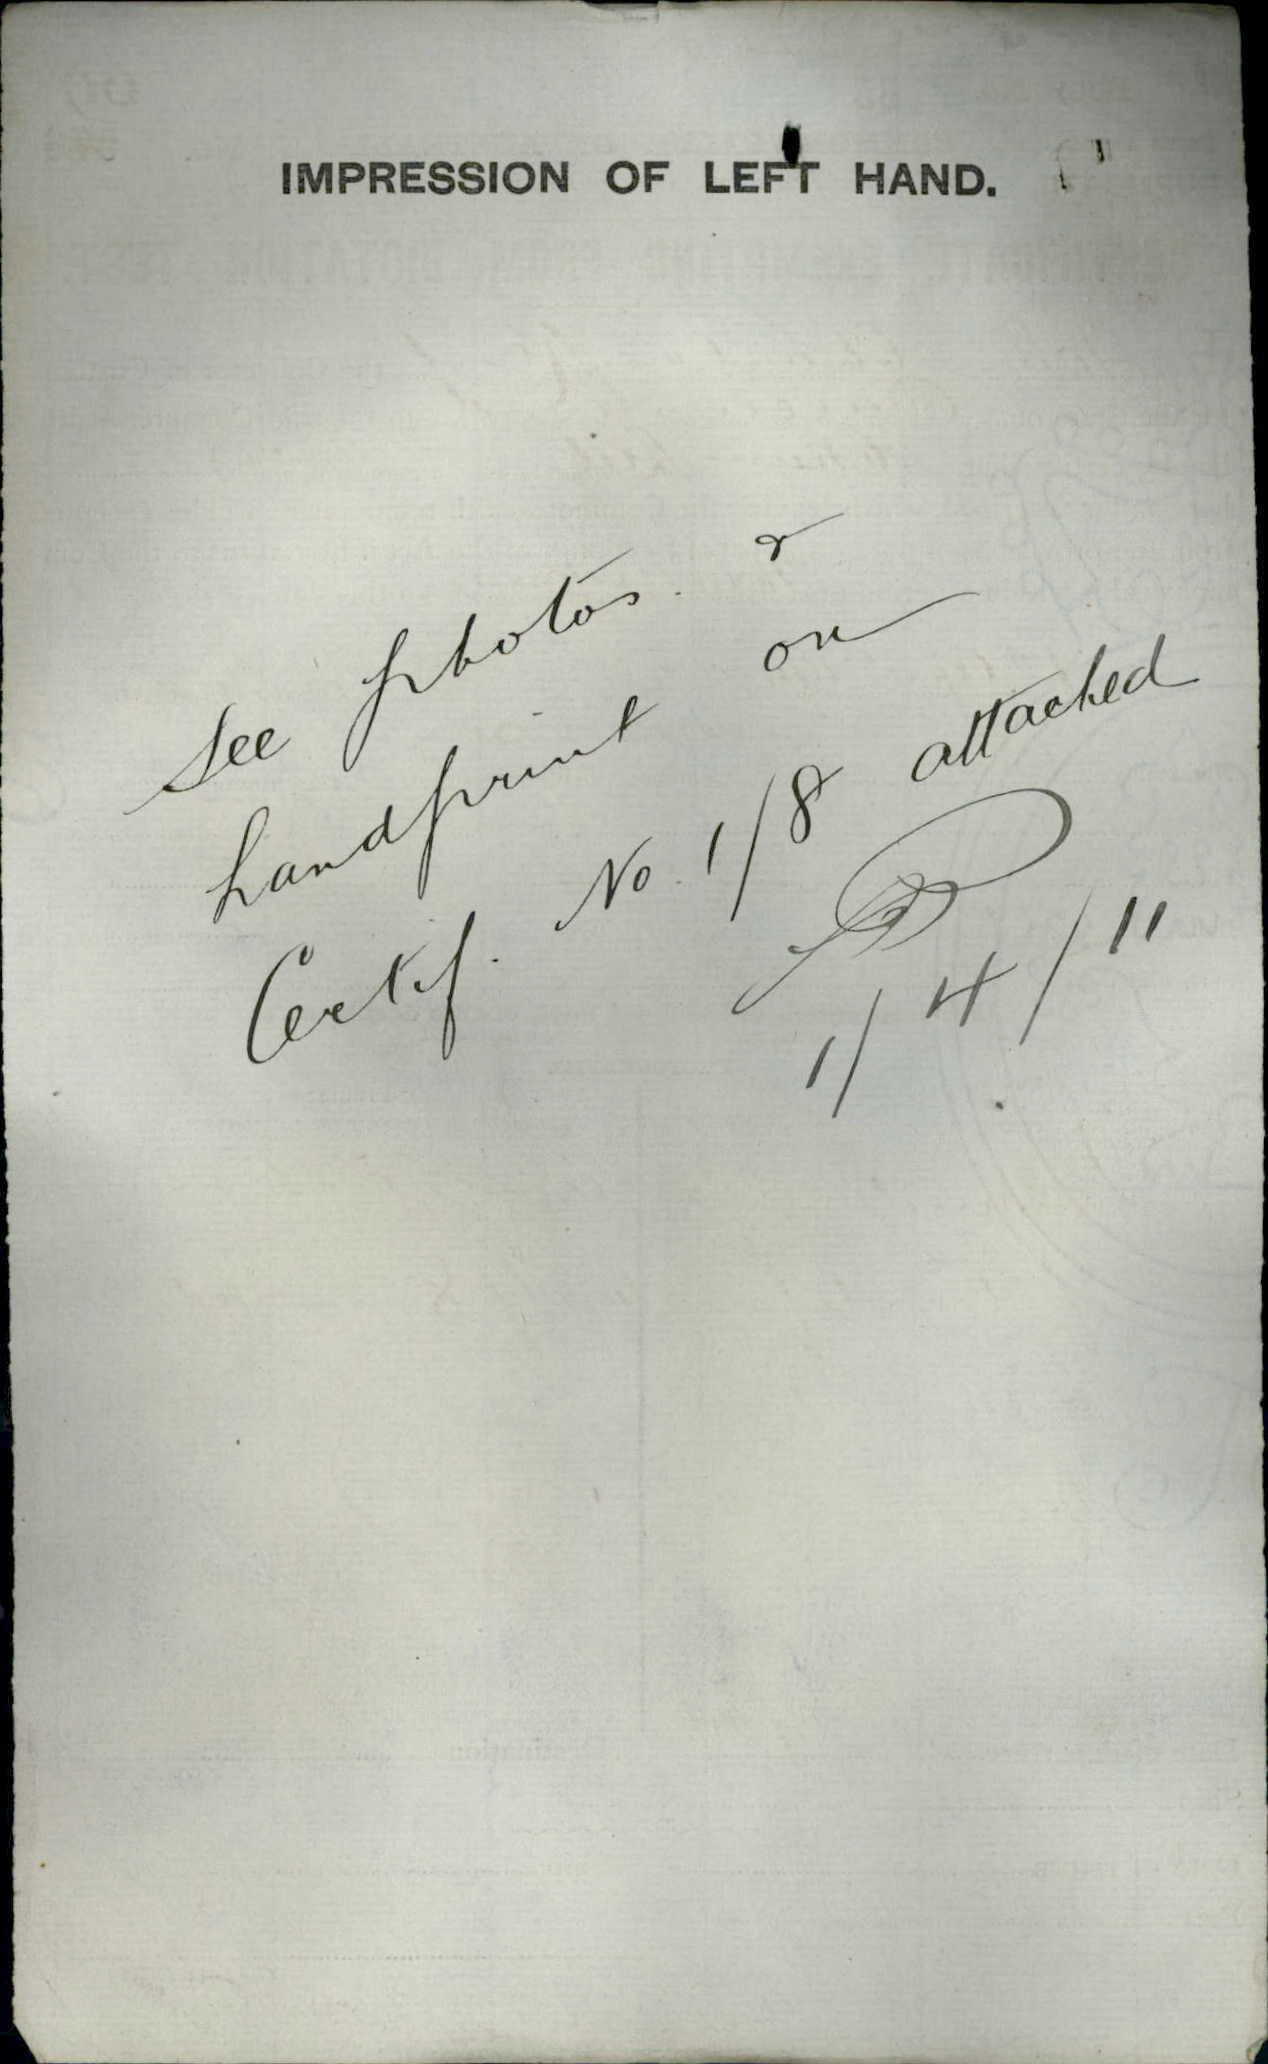 IMPRESSION OF LEFT HAND.
See photos. &
handprint on
Certif. No. 1/8 attached
1/4/11